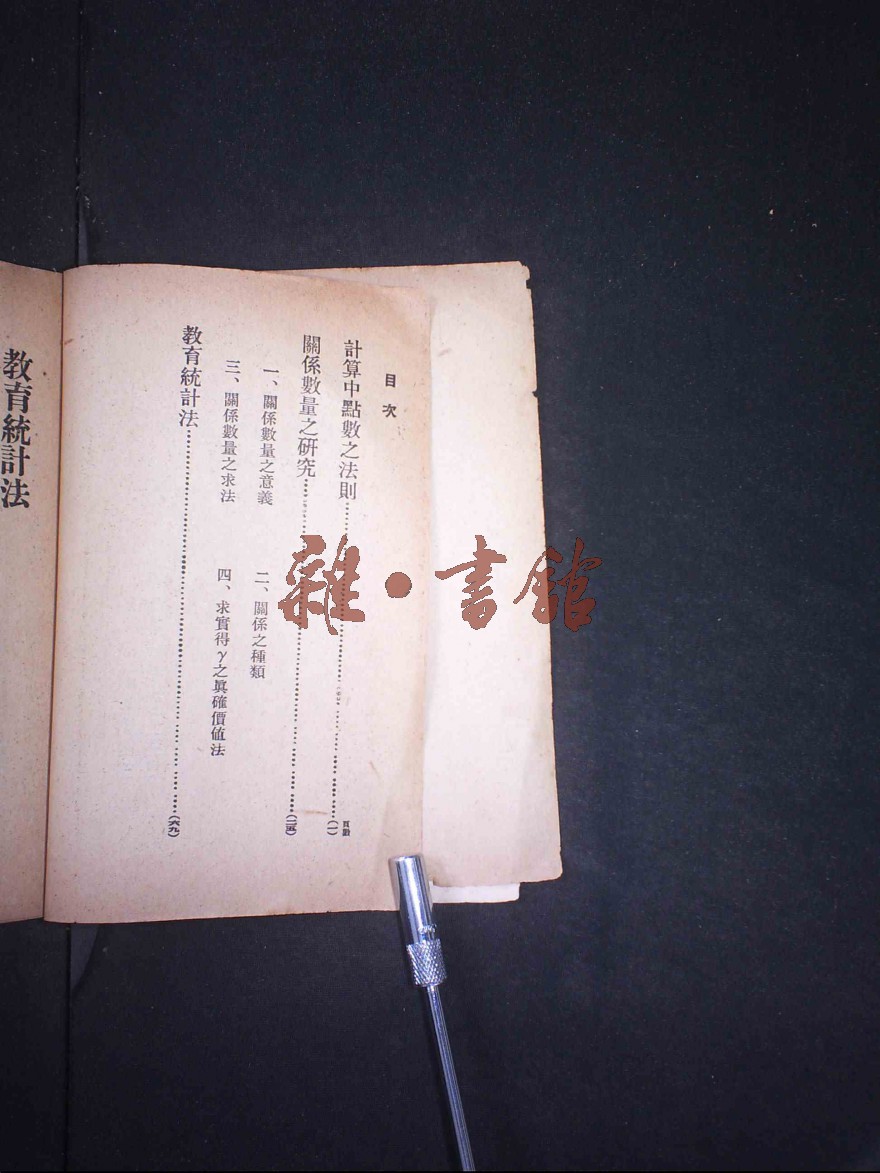 目次
頁數
計算中點數之法則……(一)
關係數量之研究……(二五)
一、關係數量之意義 二、關係之種類
三、關係數量之求法 四、求實得γ之眞確價値法
教育統計法……(六九)
教育統計法
雜·書館